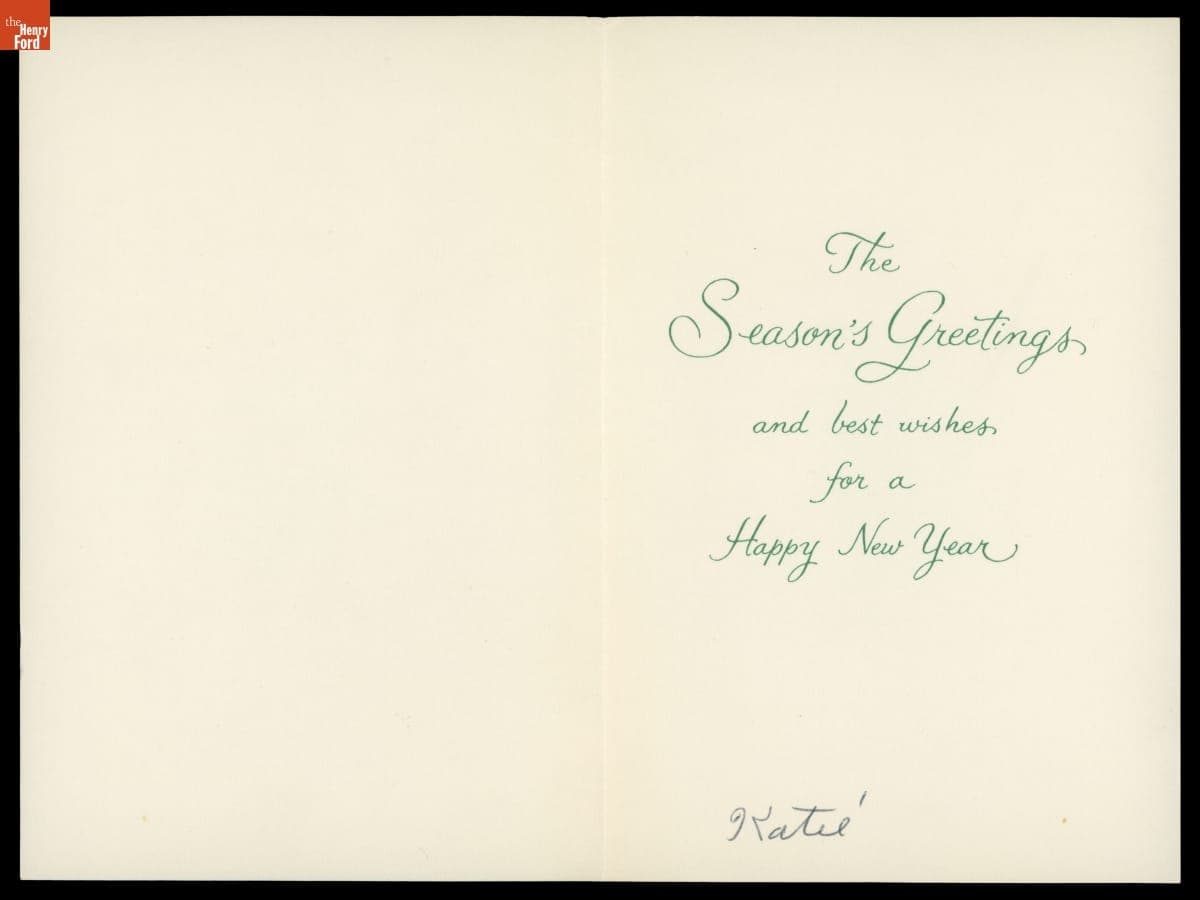 the
Henry
Ford
The
Season's Greetings
and best wishes
for a
Happy New Year
Katie